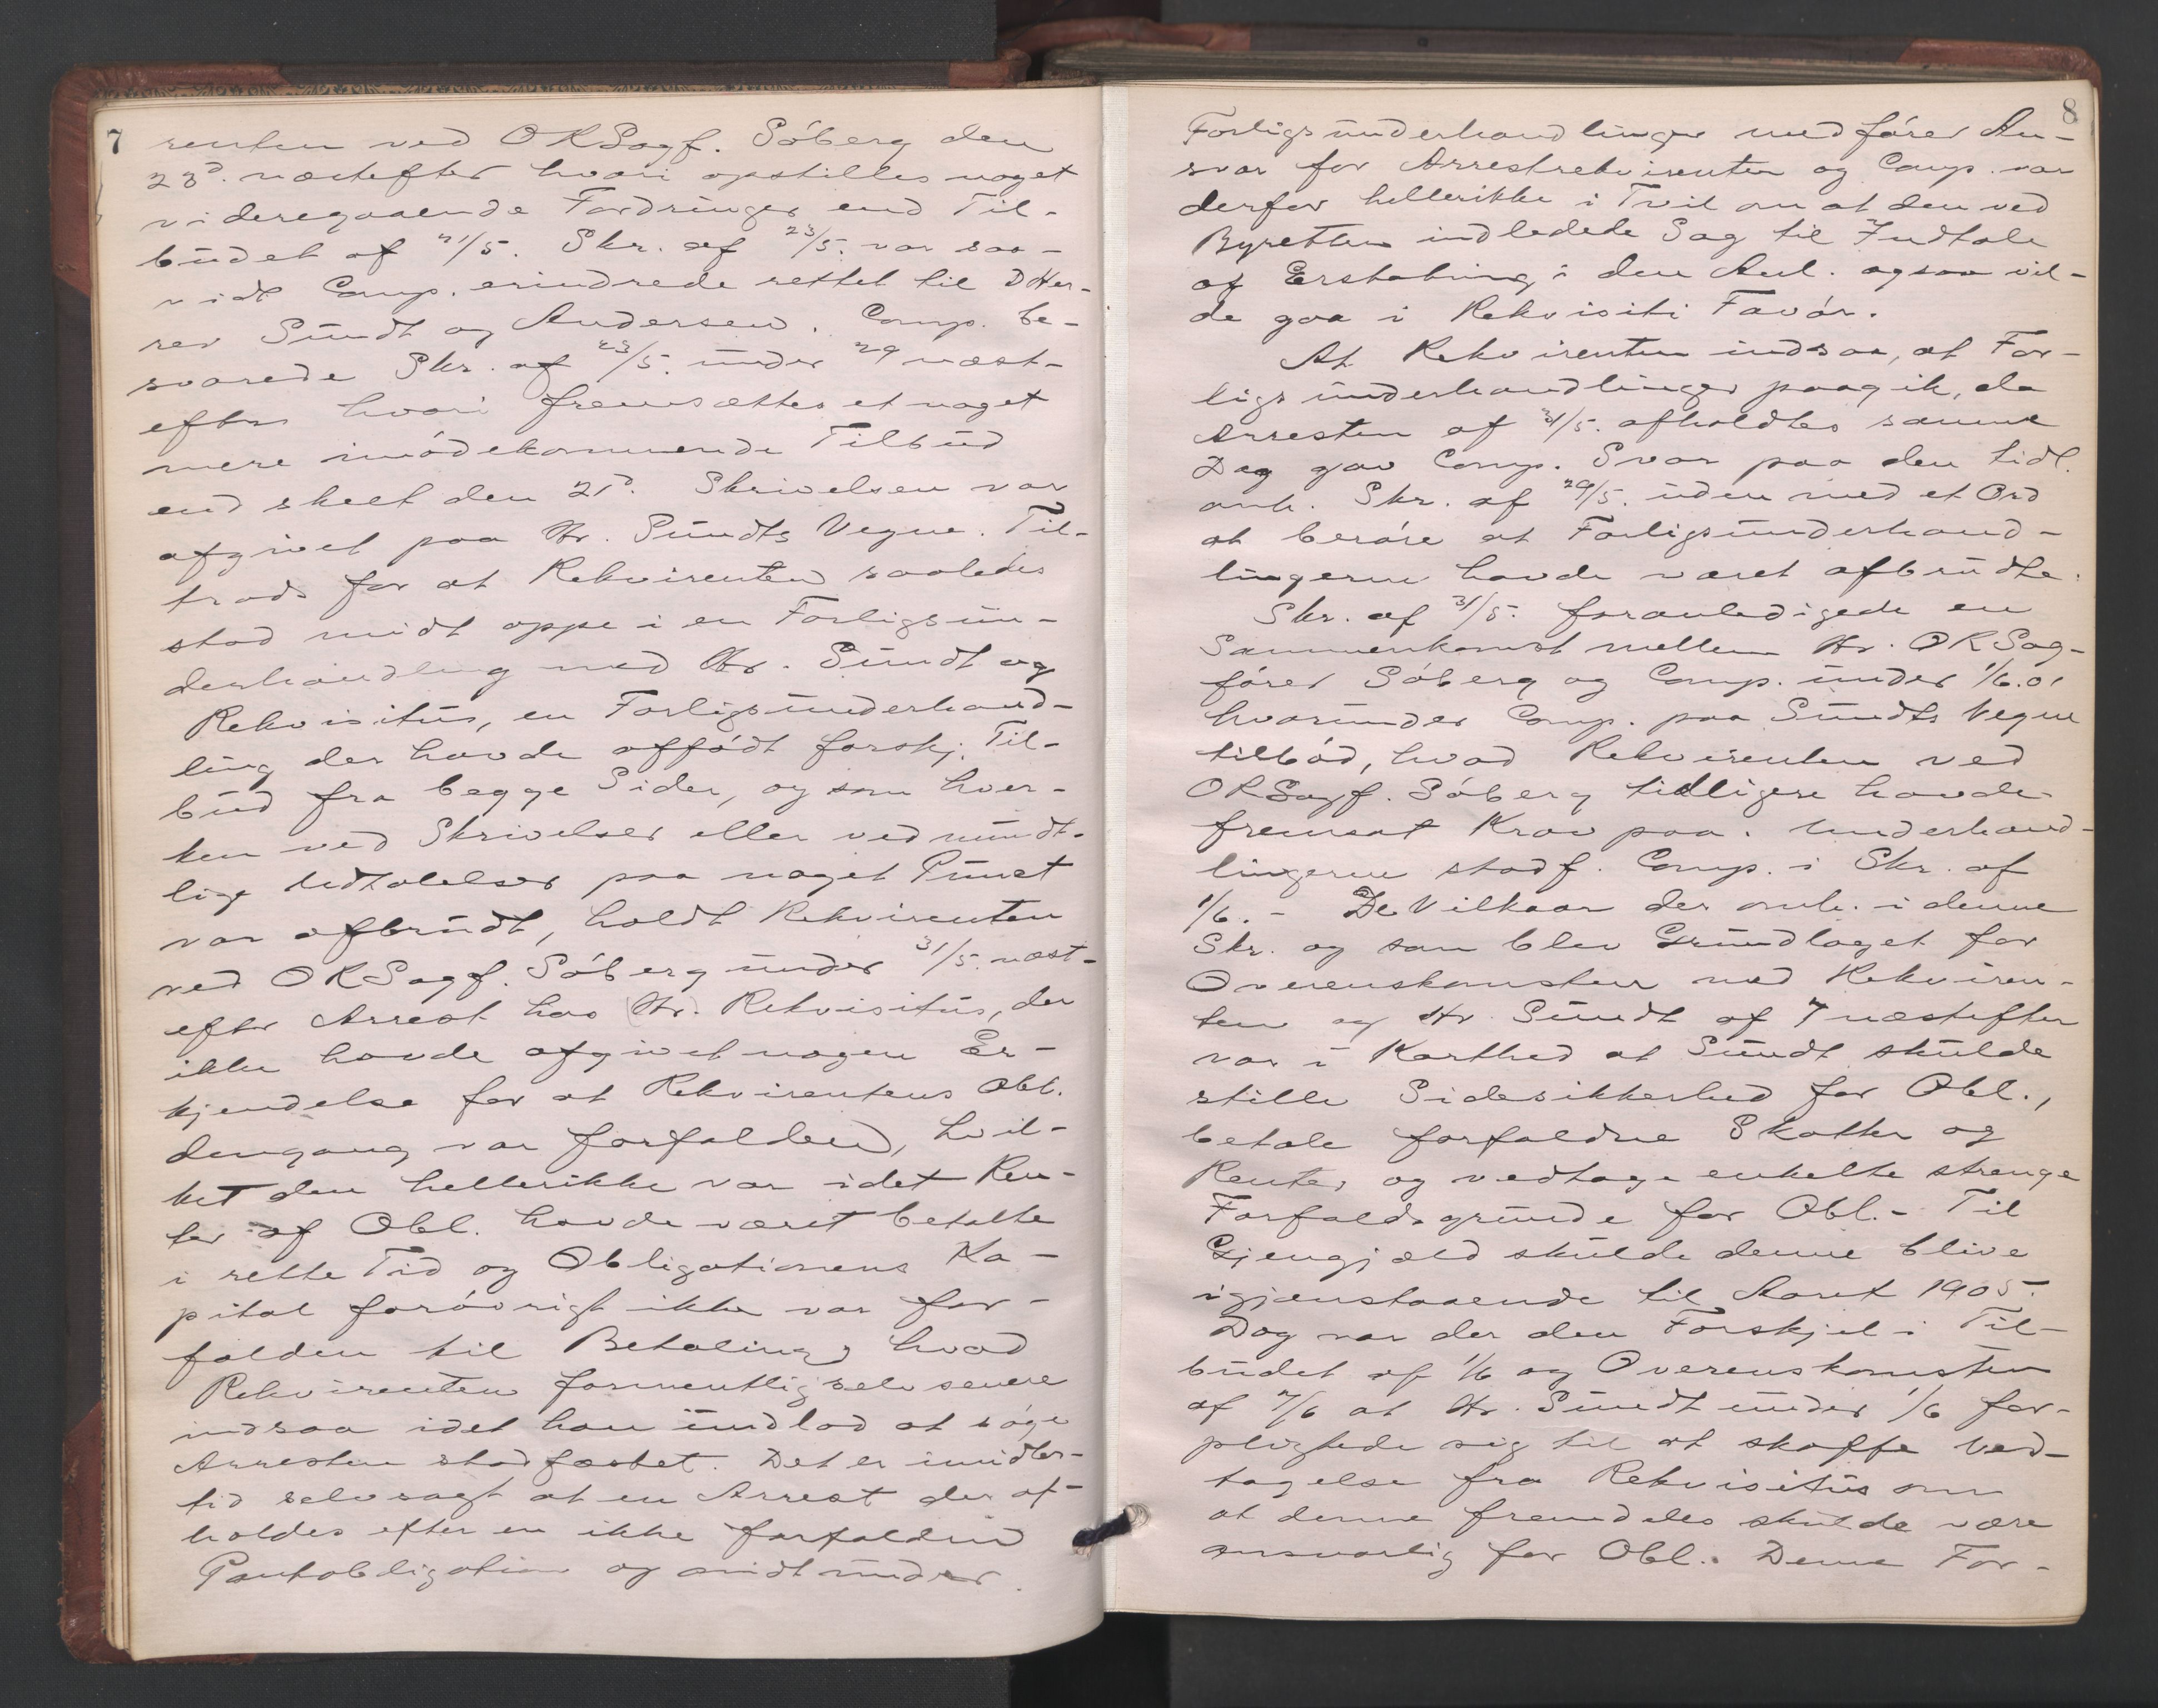 7
renten ved ORSagf. Söberg den
23d. næstefter hvori opstilles noget
videregaaende Fordringer end Til-
budet af 21/5. Skr. af 23/5. var saa-
vidt Comp. erindrede rettet til DHer-
rer Sundt og Andersen. Comp. be-
svarede Skr. af 23/5. under 29 næst-
efter hvori fremsættes et noget
mere imödekommende Tilbud
end skeet den 21d. Skrivelsen var
afgivet paa Hr. Sundts Vegne. Til-
trods for at Rekvirenten saaledes
stod midt oppe i en Forligsun-
derhandling med Hr. Sundt og
Rekvisitus, en Forligsunderhand-
ling der havde affödt forskj. Til-
bud fra begge Sider, og som hver-
ken ved Skrivelser eller ved mundt-
lige Udtalelser paa noget Punct
var afbrudt, holdt Rekvirenten
ved ORSagf. Söberg under 31/5. næst-
efter Arrest hos (Hr.) Rekvisitus, der
ikke havde afgivet nogen Er-
kjendelse for at Rekvirentens Obl.
dengang var forfalden, hvil-
ket den hellerikke var idet Ren-
ter af Obl. havde været betalte
i rette Tid og Obligationens Ka-
pital forövrigt ikke var for-
falden til Betaling, hvad
Rekvirenten formentlig selv senere
indsaa idet han undlod at söge
Arresten stadfæstet. Det er imidler-
tid selvsagt at en Arrest der af-
holdes efter en ikke forfalden
Pantobligation og midt under
8
Forligsunderhandlinger medförer An-
svar for Arrestrekvirenten og Comp. var
derfor hellerikke i Tvil om at den ved
Byretten indledede Sag til Indtale
af Erstatning i den Anl. ogsaa vil-
de gaa i Rekvisiti Favör.
At Rekvirenten indsaa, at For-
ligsunderhandlinger paagik, da
Arresten af 31/5. afholdtes samme
Dag gav Comp. Svar paa den tidl.
omh. Skr. af 29/5. uden med et Ord
at beröre at Forligsunderhand-
lingerne havde været afbrudte.
Skr. af 31/5. foranledigede en
Sammenkomst mellem Hr. ORSag-
förer Söberg og Comp. under 1/6.01
hvorunder Comp. paa Sundts Vegne
tilböd, hvad Rekvirenten ved
ORSagf. Söberg tidligere havde
fremsat Krav paa. Underhand-
lingerne stadf. Comp. i Skr. af
1/6. - De Vilkaar der omh. i denne
Skr. og som blev Grundlaget for
Overenskomsten med Rekviren-
ten og Hr. Sundt af 7 næstefter
var i Korthed at Sundt skulde
stille Sidesikkerhed for Obl.,
betale forfaldne Skatter og
Renter og vedtage enkelte strenge
Forfaldsgrunde for Obl. - Til
Gjengjæld skulde denne blive
igjenstaaende til Aaret 1905.
Dog var der den Forskjel i Til-
budet af 1/6 og Overenskomsten
af 7/6 at Hr. Sundt under 1/6 for-
pligtede sig til at skaffe Ved-
tagelse fra Rekvisitus om
at denne fremdeles skulde være
ansvarlig for Obl. Denne For-